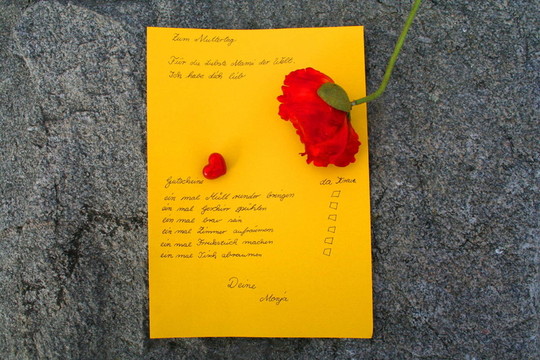 Zum Muttertag
Für die liebste Mama der Welt.
Ich habe dich lieb
Gutscheine
ein mal Müll runter bringen
ein mal Geschirr spühlen
ein mal brav sein
ein mal Zimmer aufräumen
ein mal Frühstück machen
ein mal Tisch abräumen
Deine